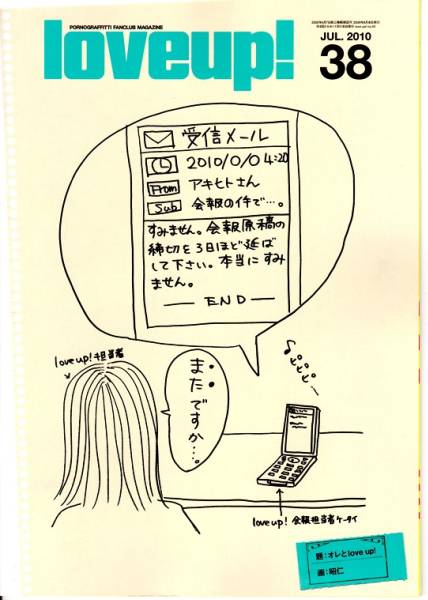 PORNOGRAFFITTI FANCLUB MAGAZINE
loveup!
JUL. 2010
38
受信メール
2010/0/0 4:20
From アキヒトさん
Sub 会報のイキで…。
すみません。会報原稿の
締切を3日ほど延ば
して下さい。本当にすみ
ません。
END
love up!担当者
またですか…。
love up! 会報担当者ケータイ
題：オレとlove up!
画：昭仁